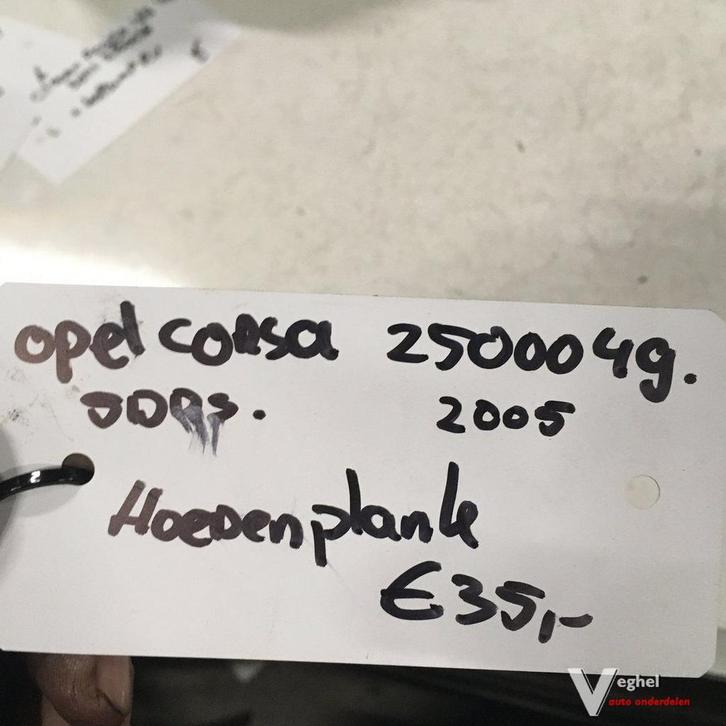 opel corsa 2500049.
5DRS. 2005
Hoedenplank
€35,-
Veghel
auto onderdelen